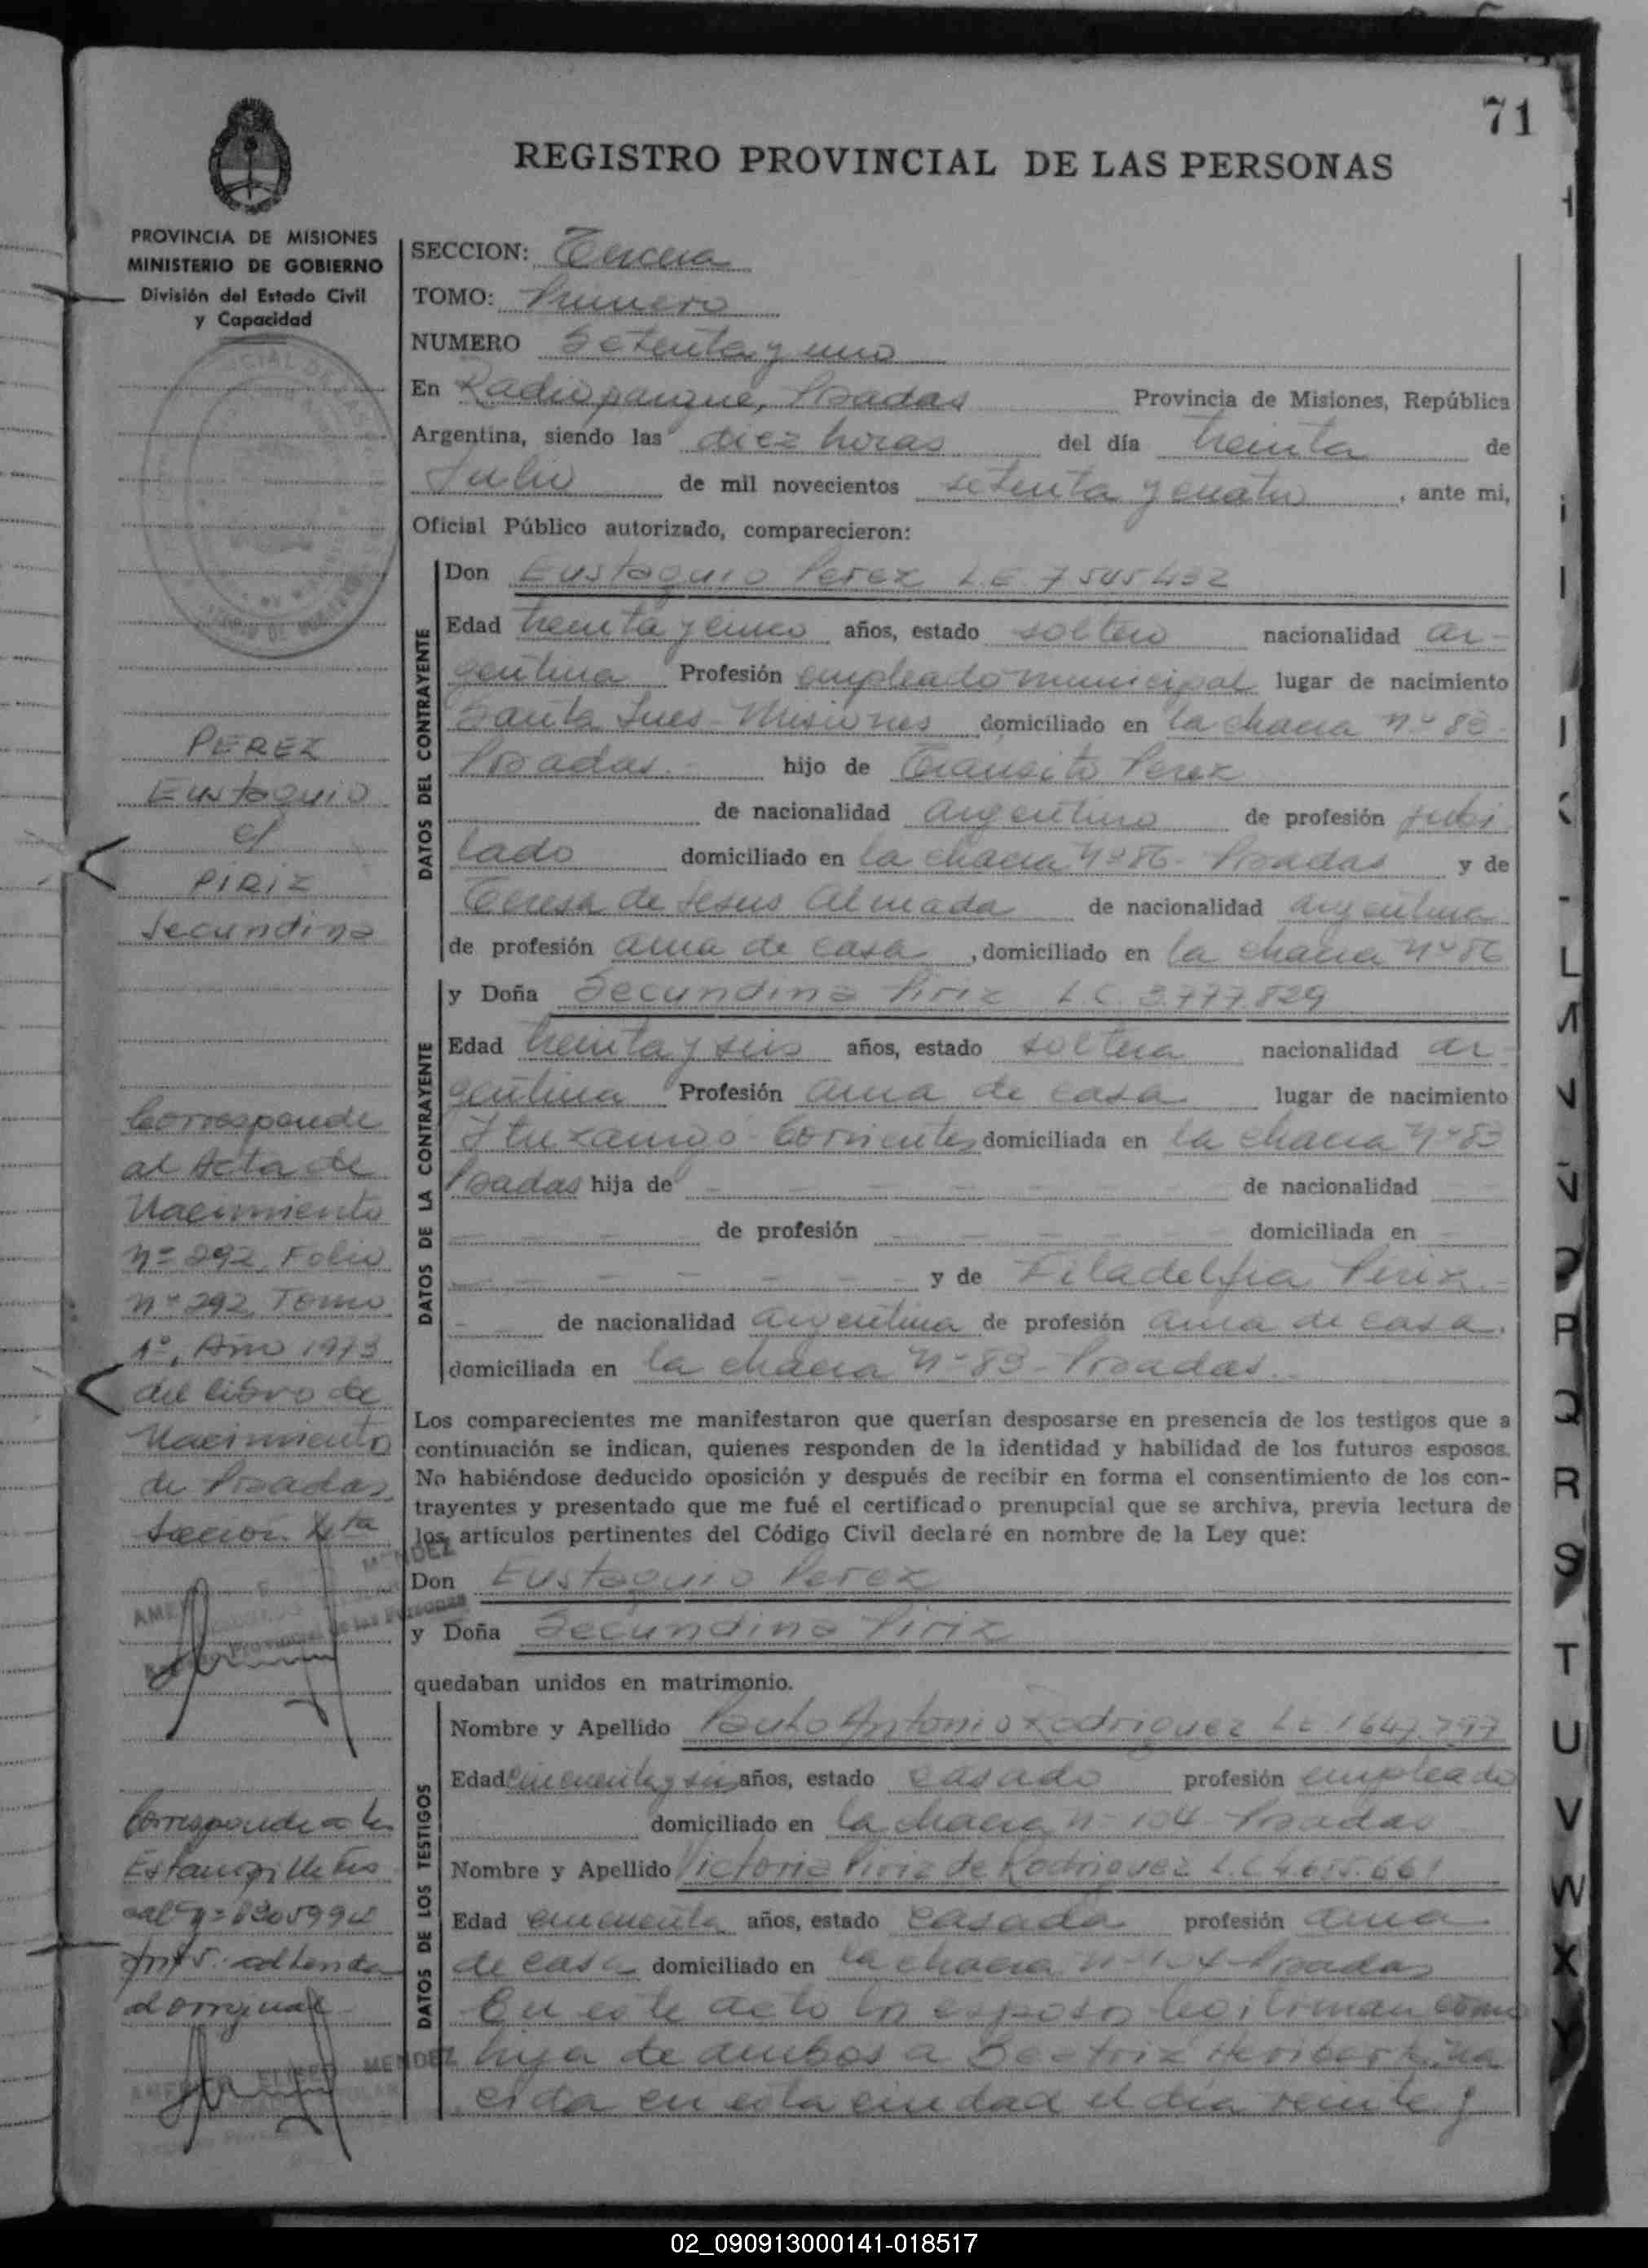 71
REGISTRO PROVINCIAL DE LAS PERSONAS
PROVINCIA DE MISIONES
MINISTERIO DE GOBIERNO
División del Estado Civil
y Capacidad
PEREZ
Eustaquio
c/
PIRIZ
Secundina
Corresponde
al Acta de
Nacimiento
nº 292, Folio
nº 292, Tomo
1º, Año 1973
del libro de
Nacimiento
de Posadas
Sección
Corresponde a la
SECCION: Tercera
TOMO: Primero
NUMERO Setenta y uno
En Radioparque, Posadas Provincia de Misiones, República
Argentina, siendo las diez horas del día treinta de
Julio de mil novecientos setenta y cuatro, ante mi,
Oficial Público autorizado, comparecieron:
DATOS DEL CONTRAYENTE
Don Eustaquio Perez L.E 7545432
Edad treinta y cinco años, estado soltero nacionalidad ar-
gentina Profesión empleado municipal lugar de nacimiento
Santa Ines - Misiones domiciliado en la chacra nº 83-
Posadas.- hijo de Transito Perez
de nacionalidad argentino de profesión jubi
lado domiciliado en la chacra nº 86 - Posadas y de
Teresa de Jesus Almada de nacionalidad argentina
de profesión ama de casa, domiciliado en la chacra nº 86
DATOS DE LA CONTRAYENTE
y Doña Secundina Piriz L.C. 3.777.829
Edad treinta y seis años, estado soltera nacionalidad ar-
gentina Profesión ama de casa lugar de nacimiento
Ituzaingo - Corrientes domiciliada en la chacra nº 83
Posadas hija de - - - - - de nacionalidad
- - - - de profesión - - - - domiciliada en -
- - - - - - y de Filadelfia Piriz -
- - de nacionalidad argentina de profesión ama de casa.
domiciliada en la chacra nº 83 - Posadas.
Los comparecientes me manifestaron que querían desposarse en presencia de los testigos que a
continuación se indican, quienes responden de la identidad y habilidad de los futuros esposos.
No habiéndose deducido oposición y después de recibir en forma el consentimiento de los con-
trayentes y presentado que me fué el certificado prenupcial que se archiva, previa lectura de
los artículos pertinentes del Código Civil declaré en nombre de la Ley que:
Don Eustaquio Perez
y Doña Secundina Piriz
quedaban unidos en matrimonio.
DATOS DE LOS TESTIGOS
Nombre y Apellido Antonio Rodriguez L.E 1647.797
Edad cincuenta y seis años, estado casado profesión empleado
domiciliado en la chacra nº 104 - Posadas
Nombre y Apellido Victoria Piriz de Rodriguez L.C 4.655.661
Edad cincuenta años, estado casada profesión ama
de casa domiciliado en la chacra nº 104 - Posadas
En este acto los esposos legitiman como
hija de ambos a Beatriz na
cida en esta ciudad el dia veinte y
02_090913000141-018517